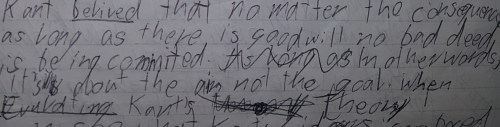 Kant belived that no matter the consequence
as long as there is good will no bad deed
is being commited. As long as In other words,
it's about the aim not the goal. when
Evaluating Kant's theory